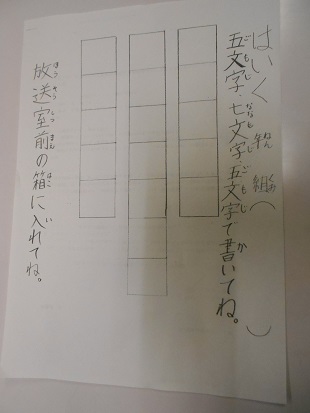 はいく 年 組( )
五文字、七文字、五文字で書いてね。
放送室前の箱に入れてね。